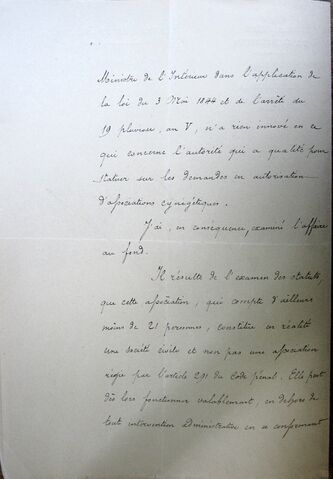 Ministre de l'Intérieur dans l'application de
la loi du 3 Mai 1844 et de l'arrêté du
19 pluviose, an V, n'a rien innové en ce
qui concerne l'autorité qui a qualité pour
statuer sur les demandes en autorisation
d'associations cynégétiques.
J'ai, en conséquence, examiné l'affaire
au fond.
Il résulte de l'examen des statuts,
que cette association, qui compte d'ailleurs
moins de 21 personnes, constitue en réalité
une société civile et non pas une association
régie par l'article 291 du Code pénal. Elle peut
dès lors fonctionner valablement, en dehors de
tout intervention administrative en se conformant